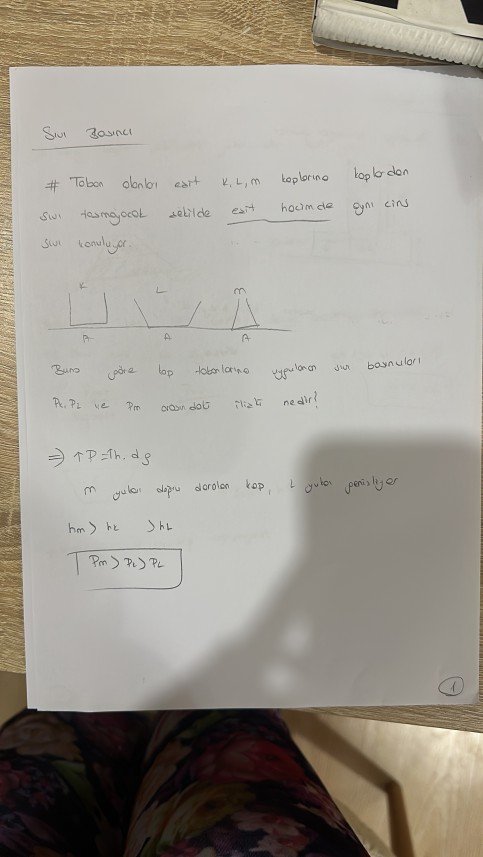 Sıvı Basıncı
# Taban alanları eşit K, L, M kaplarına kaplardan
sıvı taşmayacak şekilde eşit hacimde aynı cins
sıvı konuluyor.
K L M
A A A
Buna göre kap tabanlarına uygulanan sıvı basınçları
PK, PL ve PM arasındaki ilişki nedir?
⇒ ↑P=↑h.dg
M yukarı doğru daralan kap, L yukarı genişliyor
hM > hK > hL
PM > PK > PL
1